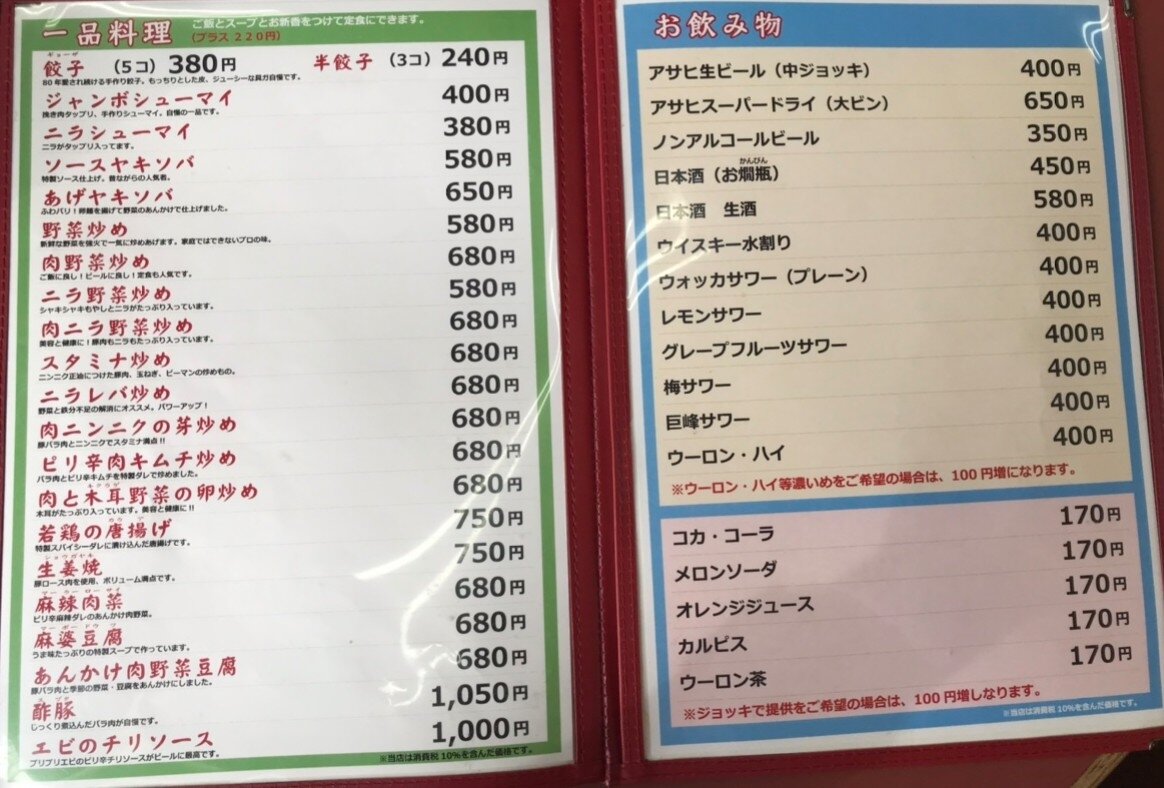 一品料理
ご飯とスープとお新香をつけて定食にできます。
(プラス 220円)
ギョーザ
餃子 (5コ) 380円 半餃子 (3コ) 240円
80年愛され続ける手作り餃子。もっちりとした皮、ジューシーな具が自慢です。
ジャンボシューマイ 400円
挽き肉タップリ、手作りシューマイ。自慢の一品です。
ニラシューマイ 380円
ニラがタップリ入ってます。
ソースヤキソバ 580円
特製ソース仕上げ。昔ながらの人気者。
あげヤキソバ 650円
ふわパリ!卵麺を揚げて野菜のあんかけで仕上げました。
野菜炒め 580円
新鮮な野菜を強火で一気に炒めあげます。家庭ではできないプロの味。
肉野菜炒め 680円
ご飯に良し!ビールに良し!定食も人気です。
ニラ野菜炒め 580円
シャキシャキもやしとニラがたっぷり入っています。
肉ニラ野菜炒め 680円
美容と健康に!豚肉もニラもたっぷり入っています。
スタミナ炒め 680円
ニンニク正油につけた豚肉、玉ねぎ、ピーマンの炒めもの。
ニラレバ炒め 680円
野菜と鉄分不足の解消にオススメ。パワーアップ!
肉ニンニクの芽炒め 680円
豚バラ肉とニンニクでスタミナ満点!!
ピリ辛肉キムチ炒め 680円
バラ肉とピリ辛キムチを特製ダレで炒めました。
キクラゲ
肉と木耳野菜の卵炒め 680円
木耳がたっぷり入っています。美容と健康に!!
カラ
若鶏の唐揚げ 750円
特製スパイシーダレに漬け込んだ唐揚げです。
ショウガヤキ
生姜焼 750円
豚ロース肉を使用、ボリューム満点です。
マーラーローサイ
麻辣肉菜 680円
ピリ辛麻辣ダレのあんかけ肉野菜。
マーボードウフ
麻婆豆腐 680円
うま味たっぷりの特製スープで作っています。
あんかけ肉野菜豆腐 680円
豚バラ肉と季節の野菜・豆腐をあんかけにしました。
酢豚 1,050円
じっくり煮込んだバラ肉が自慢です。
エビのチリソース 1,000円
プリプリエビのピリ辛チリソースがビールに最高です。
※当店は消費税10%を含んだ価格です。
お飲み物
アサヒ生ビール(中ジョッキ) 400円
アサヒスーパードライ(大ビン) 650円
ノンアルコールビール 350円
かんびん
日本酒(お燗瓶) 450円
日本酒 生酒 580円
ウイスキー水割り 400円
ウォッカサワー(プレーン) 400円
レモンサワー 400円
グレープフルーツサワー 400円
梅サワー 400円
巨峰サワー 400円
ウーロン・ハイ 400円
※ウーロン・ハイ等濃いめをご希望の場合は、100円増になります。
コカ・コーラ 170円
メロンソーダ 170円
オレンジジュース 170円
カルピス 170円
ウーロン茶 170円
※ジョッキで提供をご希望の場合は、100円増しなります。
※当店は消費税10%を含んだ価格です。